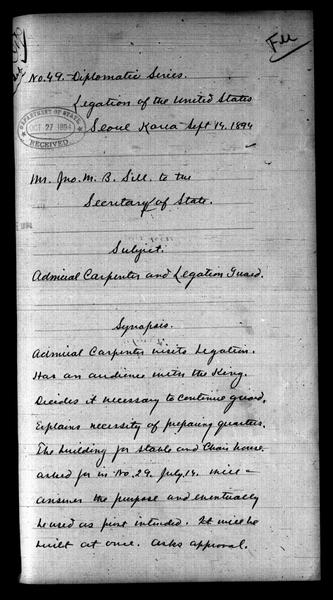 File
No. 49. Diplomatic Series.
Legation of the United States
Seoul Korea Sept 14, 1894
DEPARTMENT OF STATE
OCT 27 1894
RECEIVED
Mr. Jno. M. B. Sill. to the
Secretary of State.
Subject.
Admiral Carpenter and Legation Guard.
Synopsis.
Admiral Carpenter visits Legation.
Has an audience with the King.
Decides it necessary to continue guard.
Explains necessity of preparing quarters.
The building for stable and Chair house
asked for in No. 29. July 14. will
answer the purpose and eventually
be used as first intended. It will be
built at once. Asks approval.